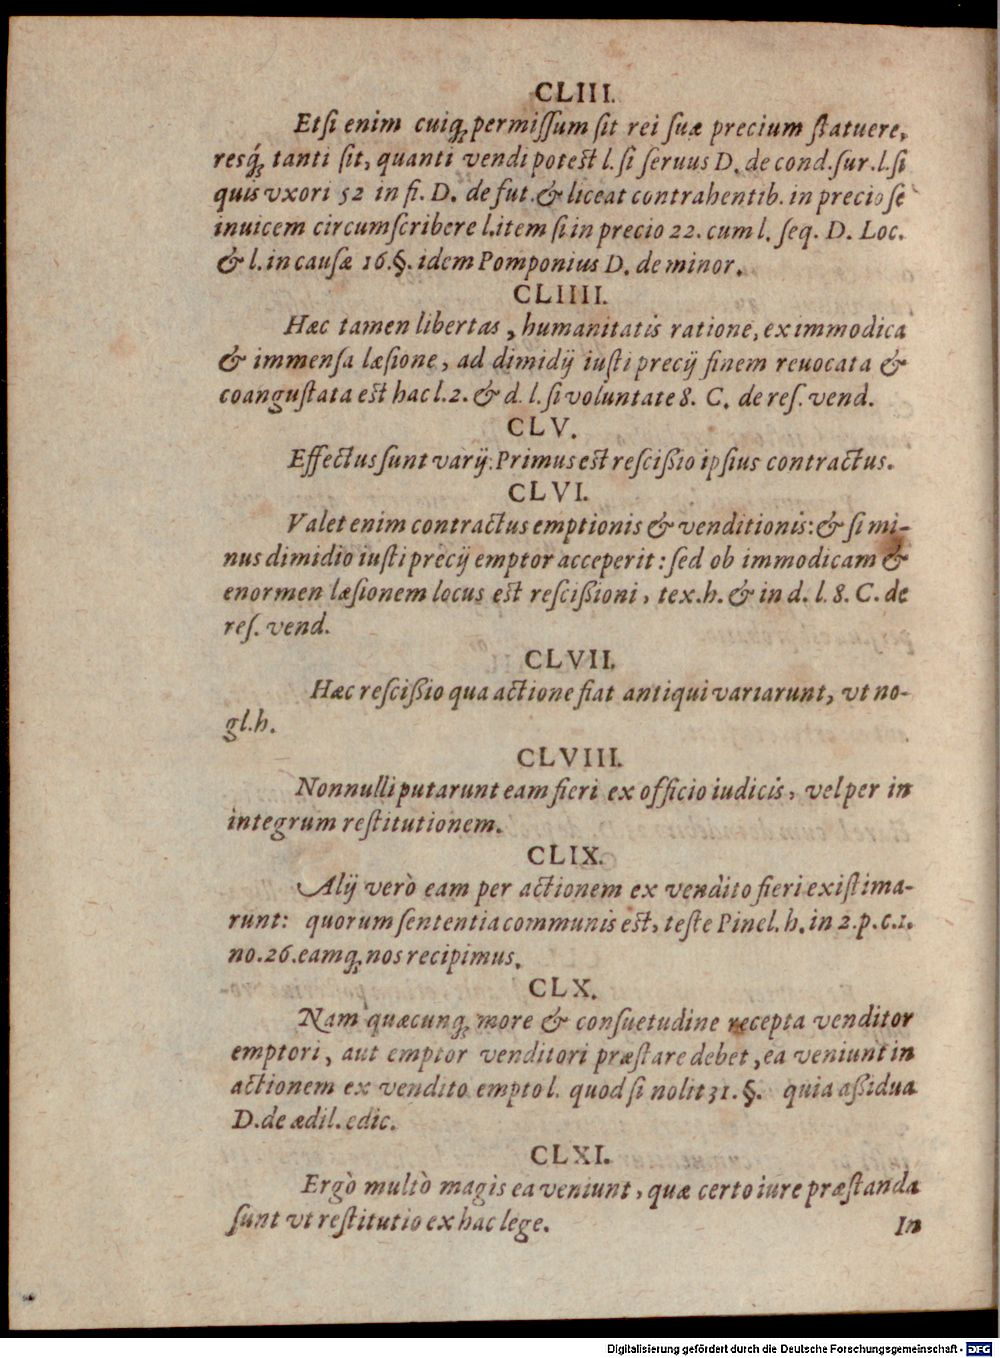 CLIII.
Etſi enim cuiq́; permiſſum ſit rei ſuæ precium ſtatuere,
resq́; tanti ſit, quanti vendi potest l. ſi ſeruus D. de cond. fur. l. ſi
quis vxori 52 in fi. D. de fut. & liceat contrahentib. in precio ſe
inuicem circumſcribere l. item ſi in precio 22. cum l. ſeq. D. Loc.
& l. in cauſæ 16. §. idem Pomponius D. de minor.
CLIIII.
Hæc tamen libertas, humanitatis ratione, ex immodica
& immenſa læſione, ad dimidij iuſti precij finem reuocata &
coanguſtata est hac l. 2. & d. l. ſi voluntate 8. C. de reſ. vend.
CLV.
Effectus ſunt varij: Primus est reſciſſio ipſius contractus.
CLVI.
Valet enim contractus emptionis & venditionis: & ſi mi-
nus dimidio iuſti precij emptor acceperit: ſed ob immodicam &
enormen læſionem locus est reſciſſioni, tex. h. & in d. l. 8. C. de
reſ. vend.
CLVII.
Hæc reſciſſio qua actione fiat antiqui variarunt, vt no-
gl. h.
CLVIII.
Nonnulli putarunt eam fieri ex officio iudicis, vel per in
integrum reſtitutionem.
CLIX.
Alij verò eam per actionem ex vendito fieri exiſtima-
runt: quorum ſententia communis est, teſte Pinel. h. in 2. p. c. 1.
no. 26. eamq; nos recipimus.
CLX.
Nam quæcunq; more & conſuetudine recepta venditor
emptori, aut emptor venditori præſtare debet, ea veniunt in
actionem ex vendito empto l. quod ſi nolit 31. §. quia aſſidua
D. de ædil. edic.
CLXI.
Ergò multò magis ea veniunt, quæ certo iure præſtanda
ſunt vt reſtitutio ex hac lege.
In
Digitalisierung gefördert durch die Deutsche Forschungsgemeinschaft - DFG